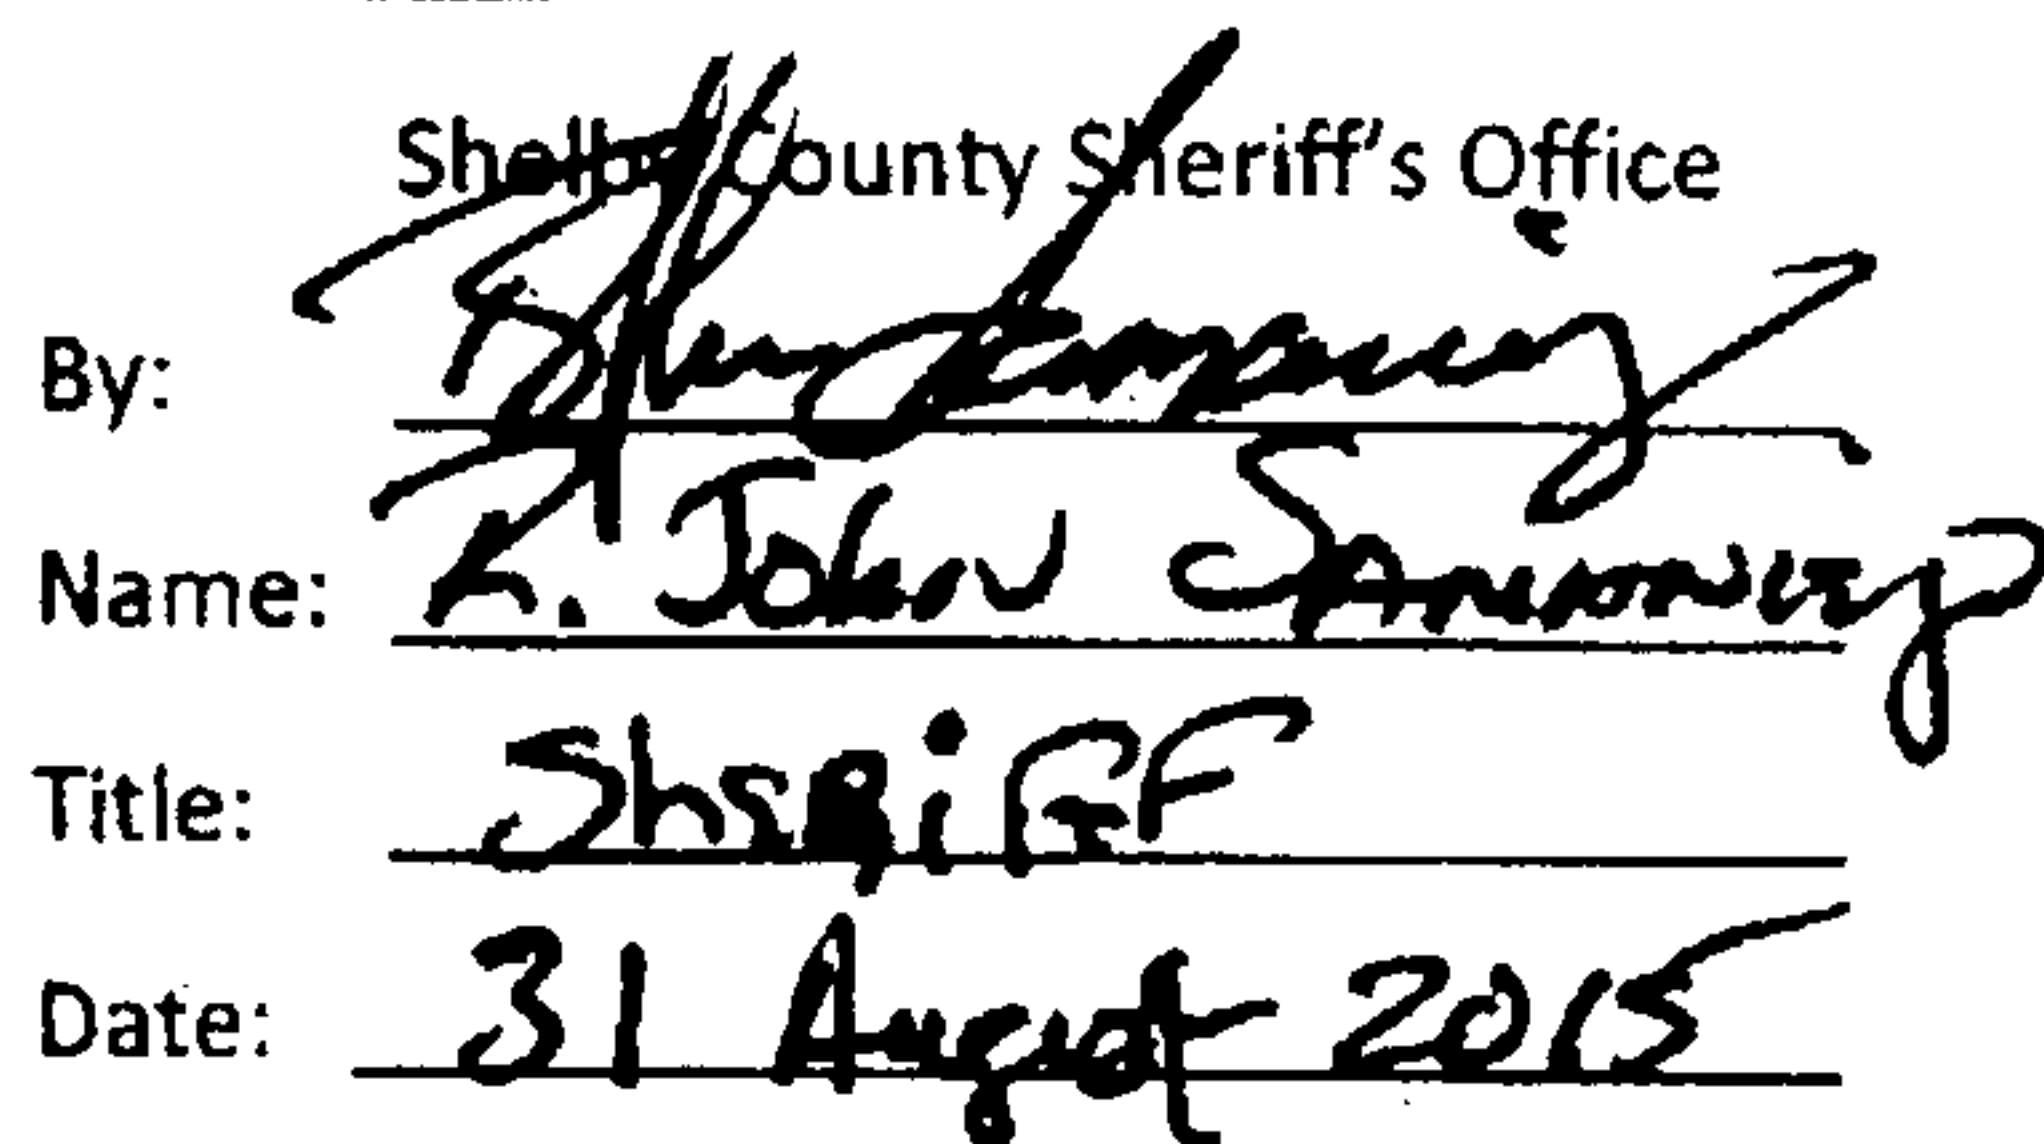 Shelby County Sheriff's Office
By:
Name: John
Title: Sheriff
Date: 31 August 2015